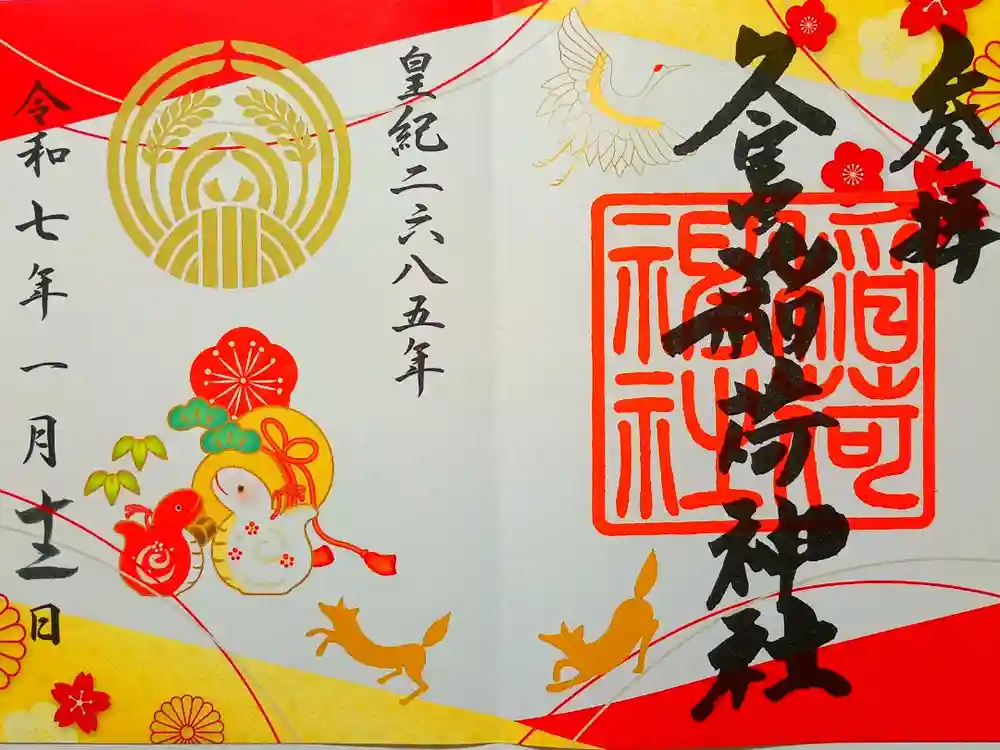 参拝
久富稲荷神社
稲荷神社
皇紀二六八五年
令和七年一月十二日